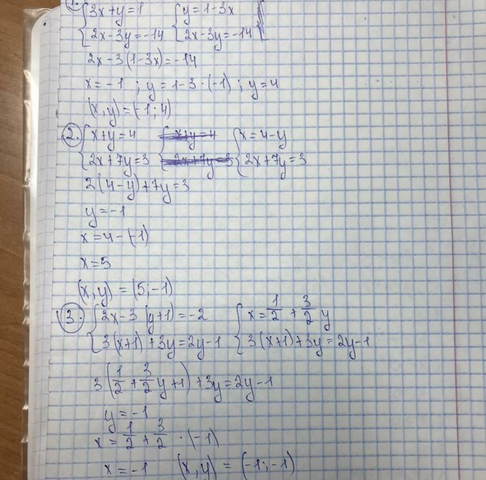 1. {3x+y=1 {y=1-3x
{2x-3y=-14 {2x-3y=-14
2x-3(1-3x)=-14
x=-1 ; y=1-3·(-1) ; y=4
(x,y)=(-1;4)
2. {x+y=4 {x+y=4 {x=4-y
{2x+7y=3 {2x+7y=3 {2x+7y=3
2(4-y)+7y=3
y=-1
x=4-(-1)
x=5
(x,y)=(5;-1)
3. {2x-3(y+1)=-2 {x=1/2+3/2y
{3(x+1)+3y=2y-1 {3(x+1)+3y=2y-1
3(1/2+3/2y+1)+3y=2y-1
y=-1
x=1/2+3/2·(-1)
x=-1 (x,y)=(-1;-1)